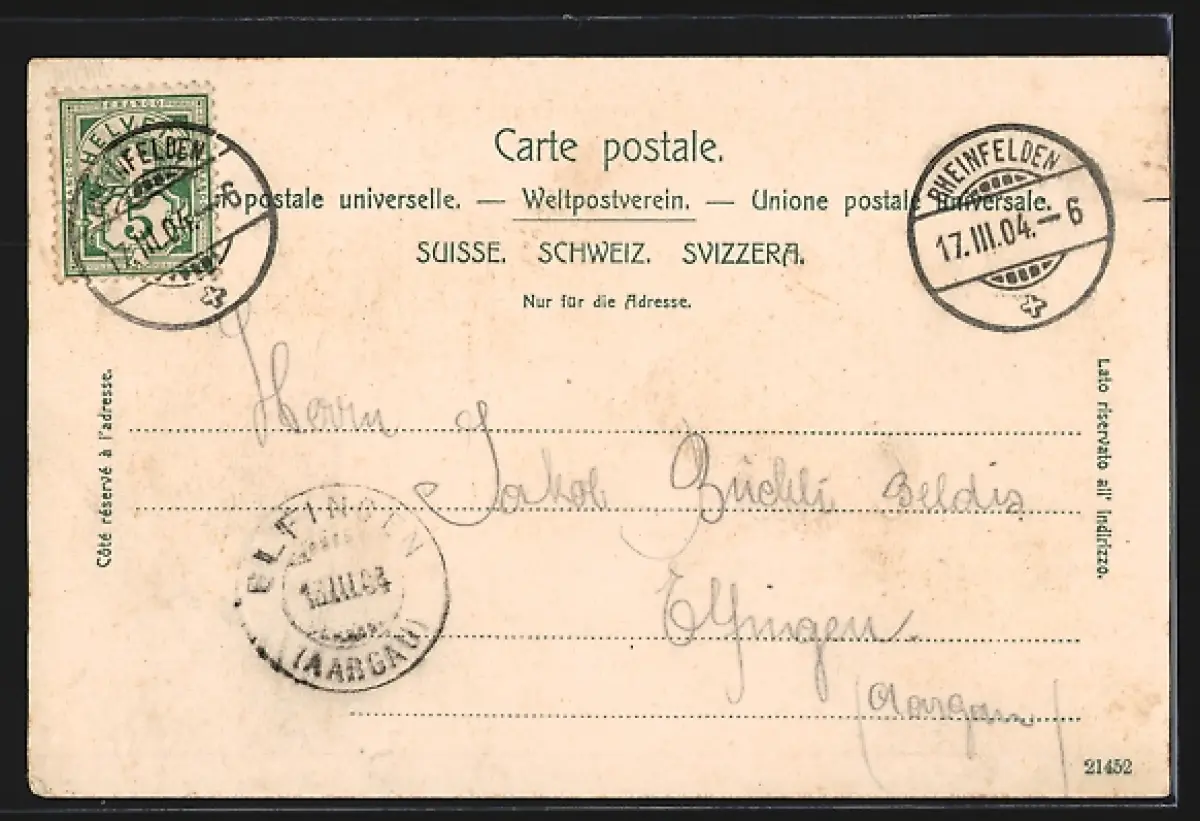 FRANCO
HELVETIA
5
RHEINFELDEN
17.III.04.-6
Carte postale.
postale universelle. — Weltpostverein. — Unione postale universale.
SUISSE. SCHWEIZ. SVIZZERA.
Nur für die Adresse.
RHEINFELDEN
17.III.04.-6
Côté réservé à l'adresse.
Lato riservato all' indirizzo.
Herrn
Jakob
Elfingen.
(Aargau)
ELFINGEN
III.04
(AARGAU)
21452